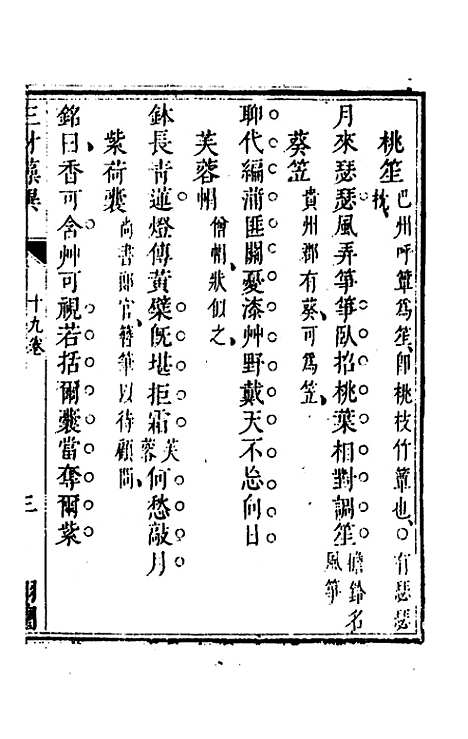 桃笙 巴州呼簟爲笙即桃枝竹簟也有瑟瑟枕
月來瑟瑟風弄箏箏臥招桃葉相對調笙 檐鈴名風箏
葵笠 貴州郡有葵可爲笠
聊代編蒲匪關憂漆艸野戴天不忘向日
芙蓉帽 僧帽狀似之
鉢長青蓮燈傳黃檗旣堪拒霜 芙蓉 何愁敲月
紫荷囊 尚書郎官簪筆以待顧問
銘曰香可含艸可視若括爾囊當奪爾紫
三才藻異 十九卷 三